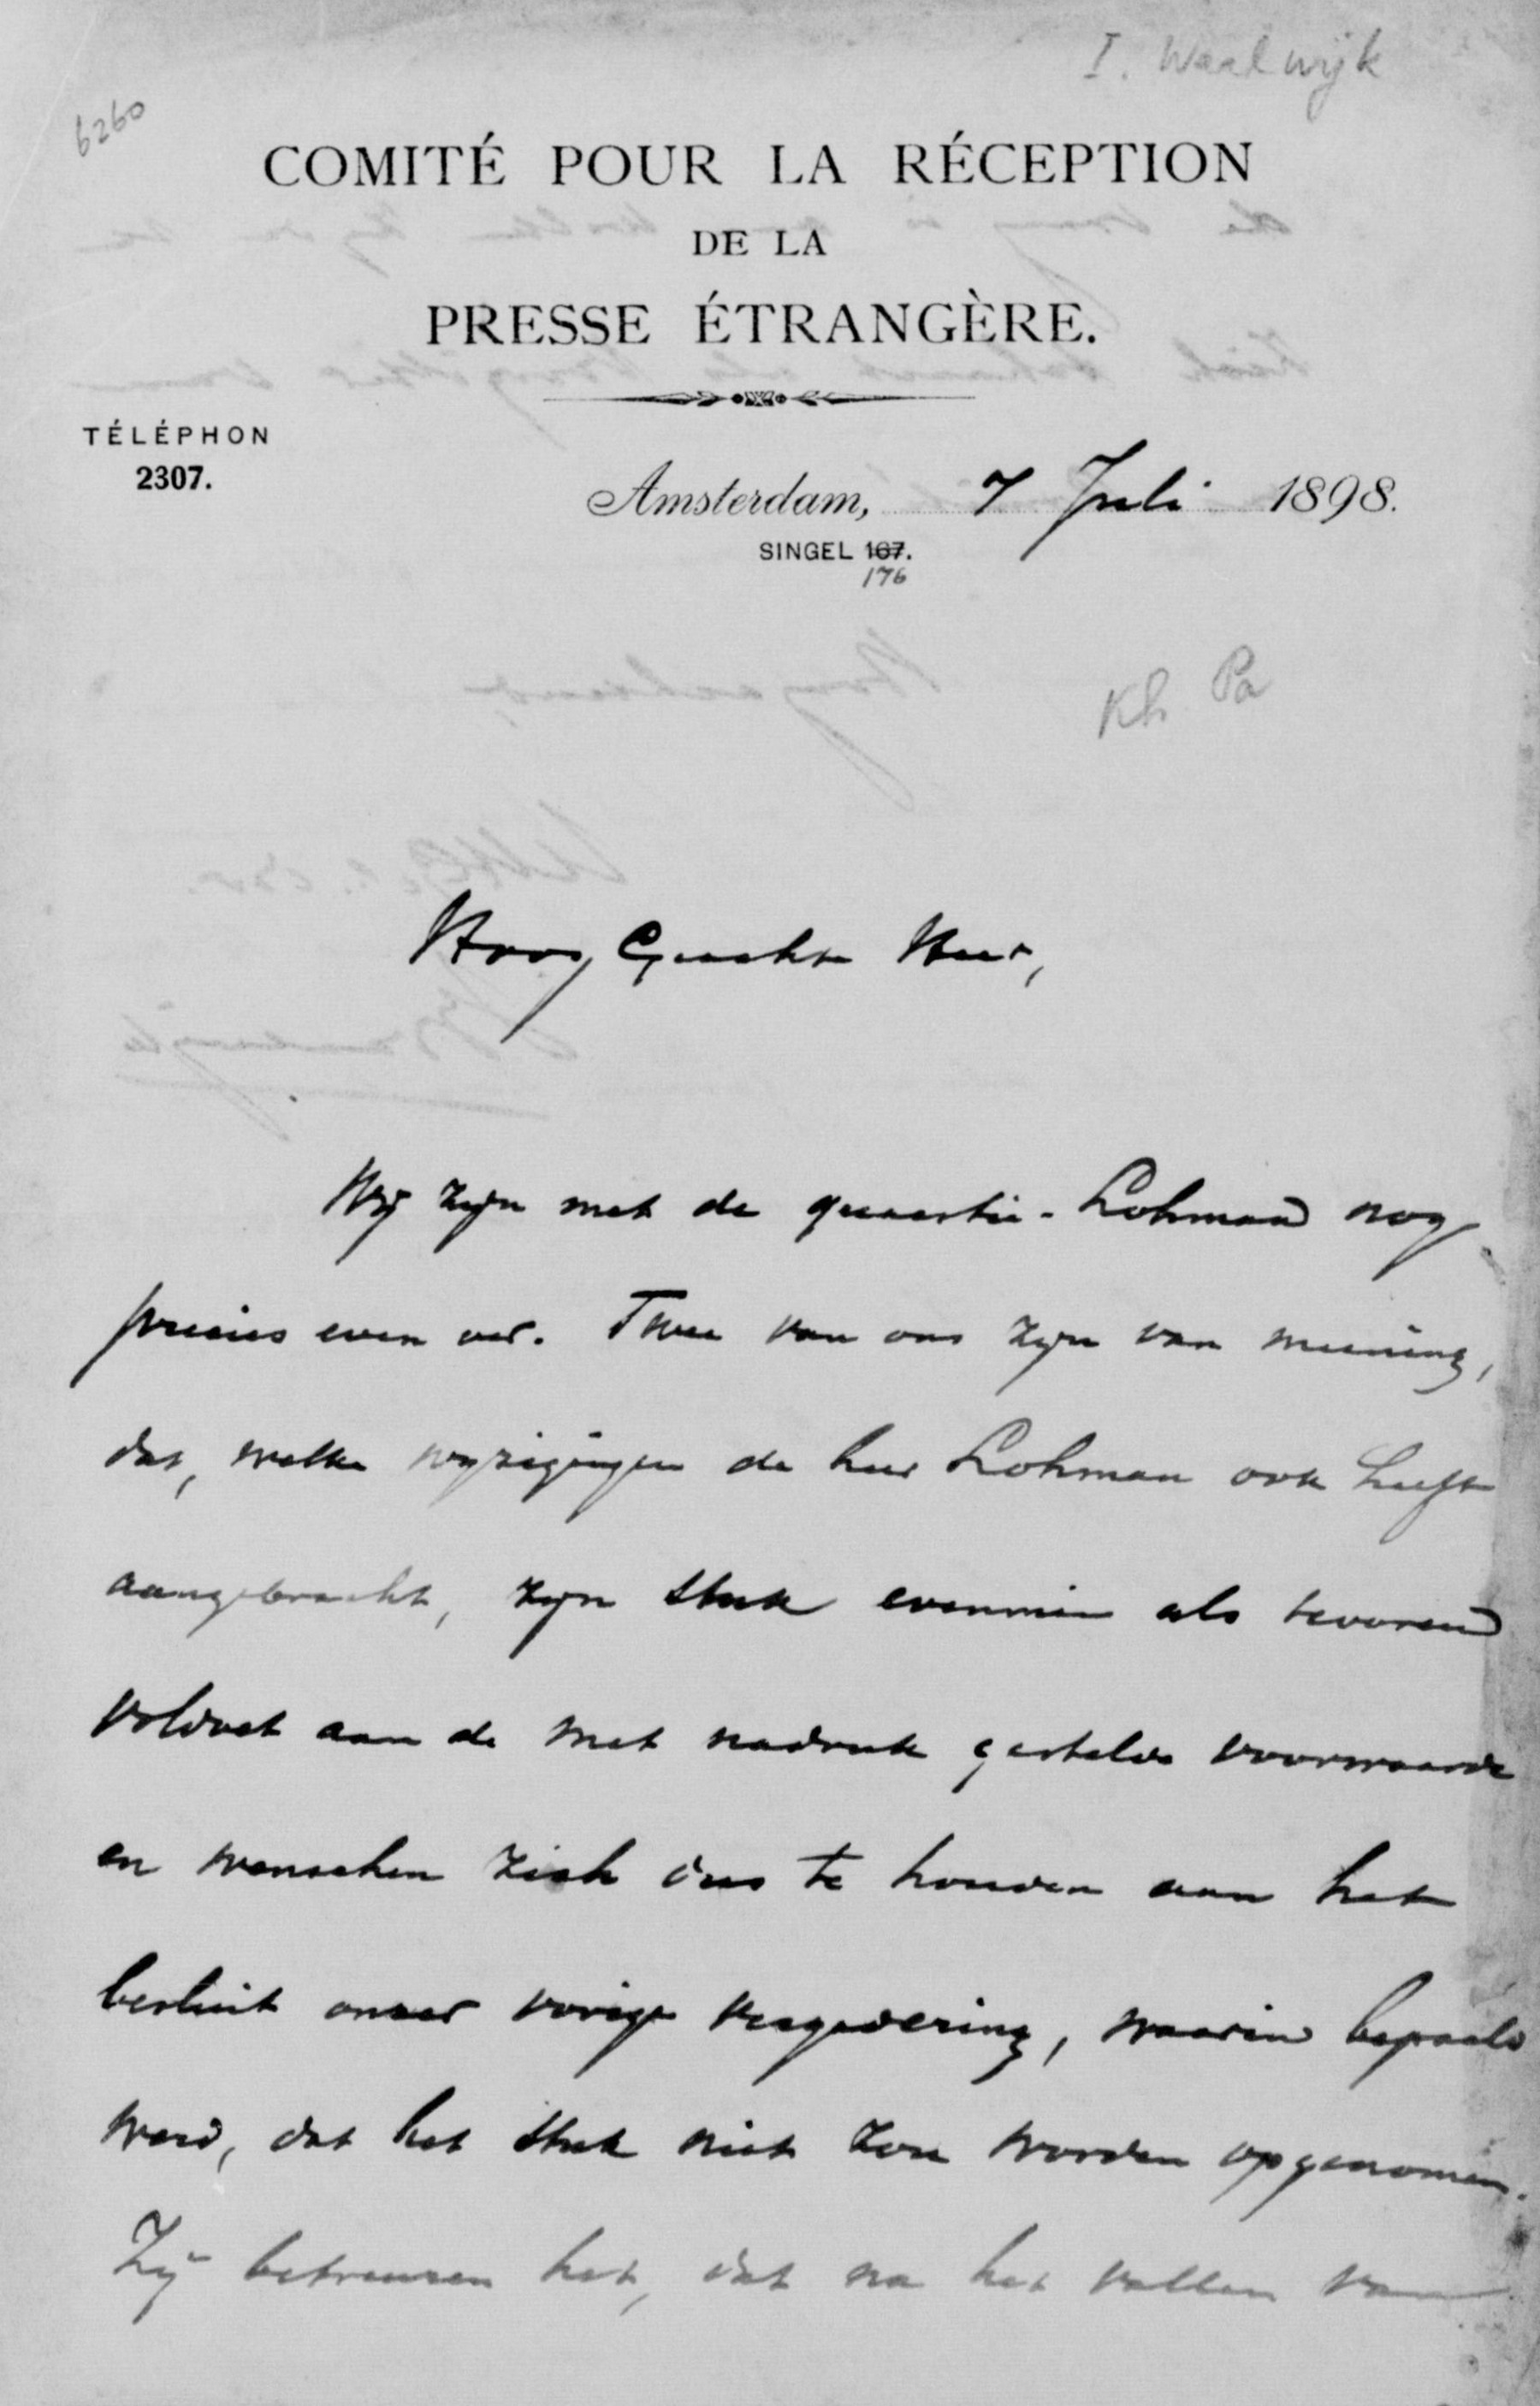 I. Waalwijk
6260
COMITÉ POUR LA RÉCEPTION
DE LA
PRESSE ÉTRANGÈRE.
TÉLÉPHON
2307.
Amsterdam, 7 Juli 1898.
SINGEL 167.
176
Kh Pa
Hoog Geachte Heer,
Wij zijn met de quaestie-Lohman nog
precies even ver. Twee van ons zijn van meening,
dat, welke wijzigingen de heer Lohman ook heeft
aangebracht, zijn stuk evenmin als tevoren
voldoet aan de met nadruk gestelde voorwaarde
en wenschen zich dus te houden aan het
besluit onzer vorige vergadering, waarin bepaald
werd, dat het stuk niet zou worden opgenomen.
Zij betreuren het, dat na het vallen van